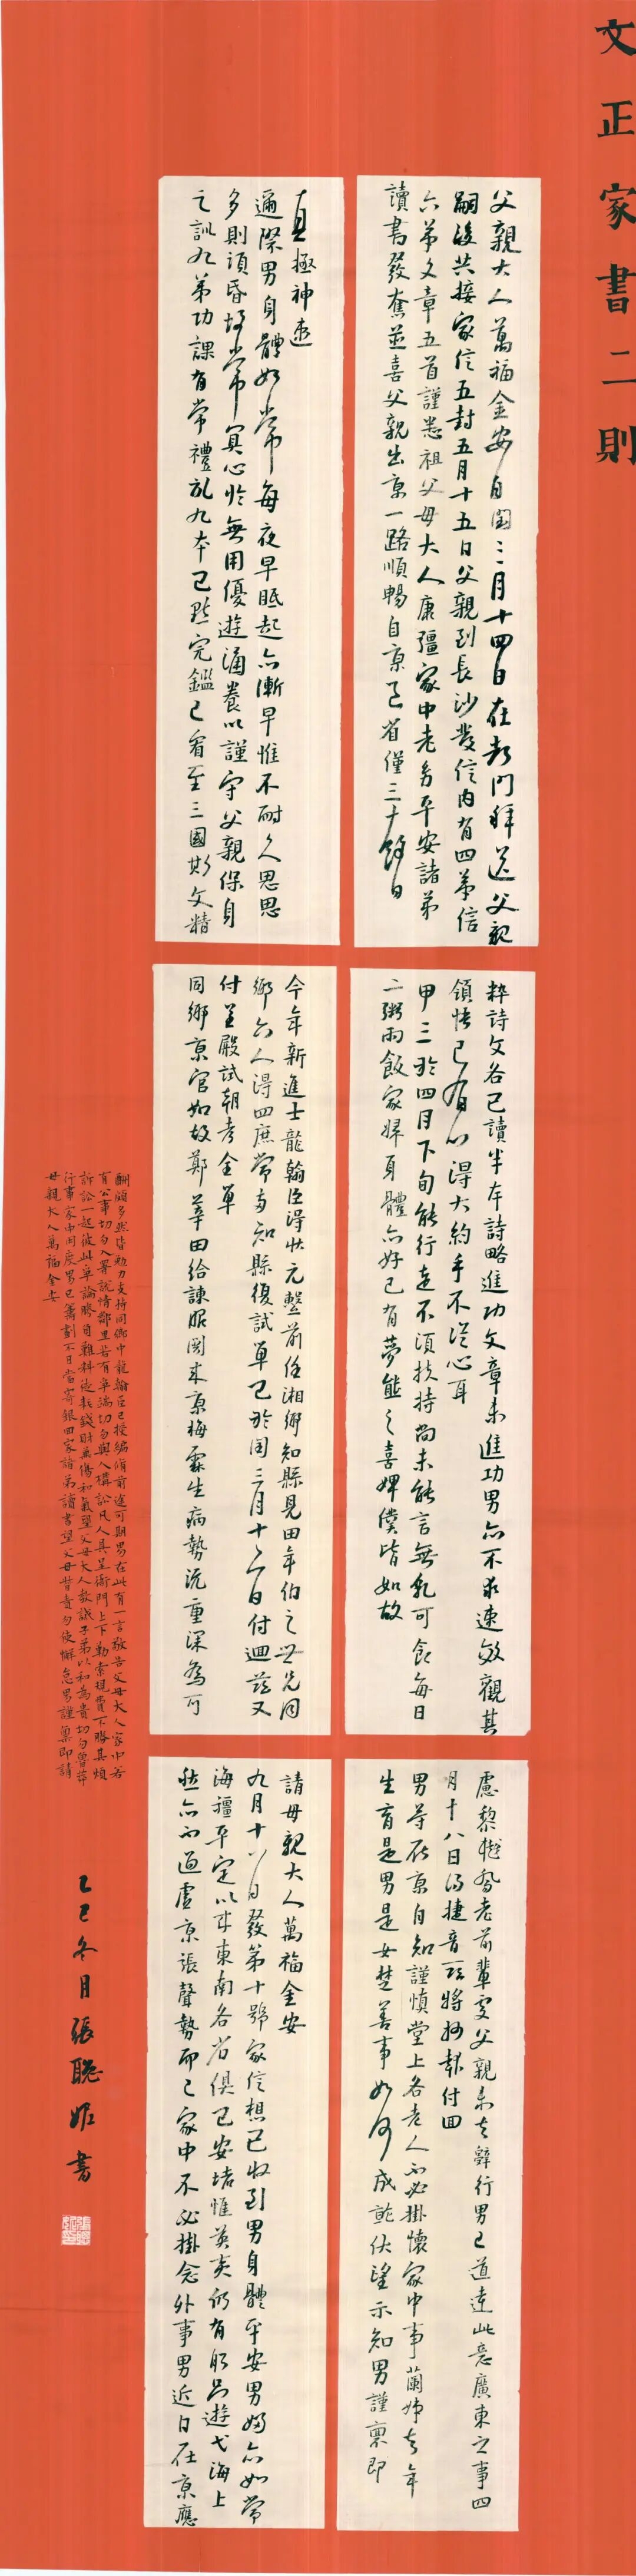 文正家書二則
父親大人萬福金安自閏三月十四日在都門拜送父親
嗣後共接家信五封五月十五日父親到長沙發信內有四弟信
六弟文章五首謹悉祖父母大人康彊家中老幼平安諸弟
讀書發奮並喜父親出京一路順暢自京至省僅三十餘日
真極神速
邇際男身體如常每夜早眠起亦漸早惟不耐久思思
多則頭昏故常冥心於無用優遊涵養以謹守父親保身
之訓九弟功課有常禮記九本已點完鑑已看至三國斯文精
粹詩文各已讀半本詩略進功文章未進功男亦不求速效觀其
領悟已有心得大約手不從心耳
甲三於四月下旬能行走不須扶持尚未能言無乳可食每日
二粥兩飯家婦身體亦好已有夢熊之喜婢僕皆如故
今年新進士龍翰臣得狀元繫前任湘鄉知縣見田年伯之世兄同
鄉六人得四庶常兩知縣復試單已於閏三月十六日付迴茲又
付呈殿試朝考全單
同鄉京官如故鄭莘田給諫服闋來京梅霖生病勢沉重深為可
慮黎樾喬老前輩處父親未去辭行男已道達此意廣東之事四
月十八日得捷音茲將抄報付回
男等在京自知謹慎堂上各老人不必掛懷家中事蘭姊去年
生育是男是女楚善事如何成就伏望示知男謹稟即
請母親大人萬福金安
九月十八日發第十號家信想已收到男身體平安男婦亦如常
海疆平定以來東南各省俱已安堵惟英夷仍有船只遊弋海上
然亦不過虛張聲勢而已家中不必掛念外事男近日在京應
酬頗多然皆勉力支持同鄉中龍翰臣已授編脩前途可期男在此有一言敬告父母大人家中若
有公事切勿入署說情鄰里若有爭端切勿與人構訟凡人具呈衙門上下勒索規費不勝其煩
訴訟一起彼此爭論勝負難料徒耗錢財兼傷和氣望父母大人教誡子弟以和為貴切勿魯莽
行事家中用度男已籌劃不日當寄銀回家諸弟讀書望父母督責勿使懈怠男謹稟即請
母親大人萬福金安
乙巳冬月張聰妮書